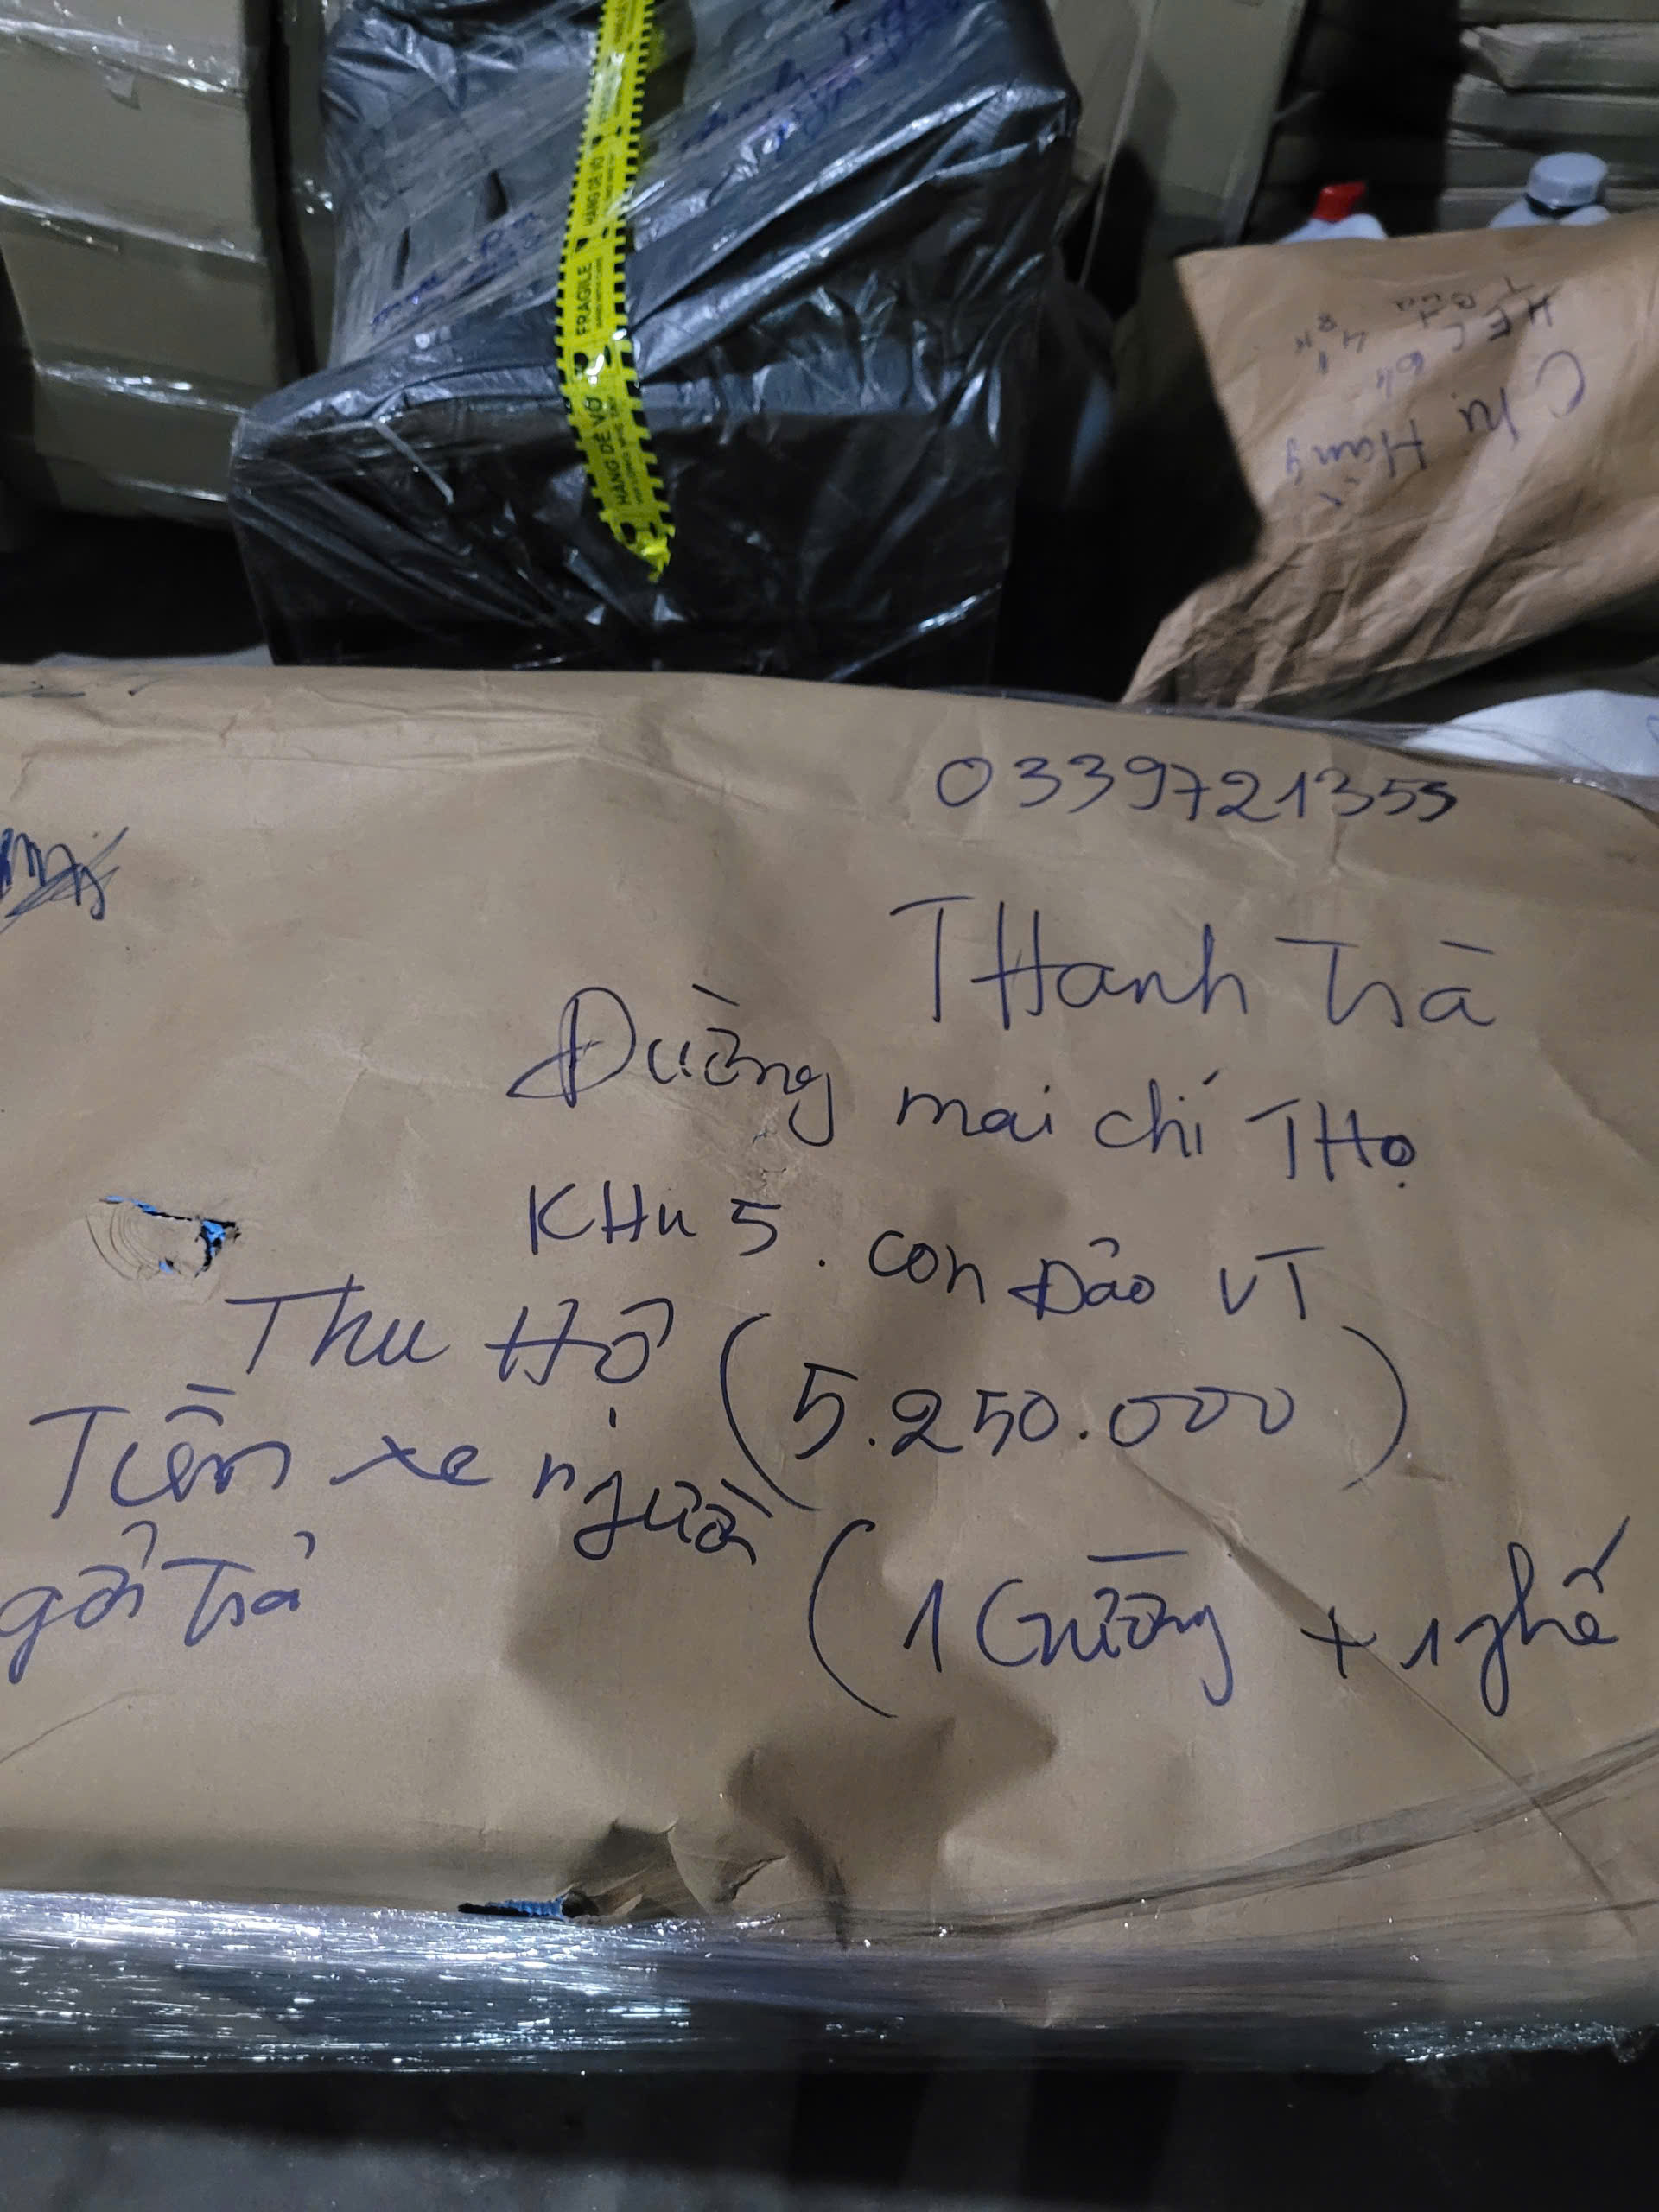 HÀNG DỄ VỠ
FRAGILE
HÀNG DỄ VỠ
Chị Hằng
0339721355
THanh Trà
Đường mai chí THọ
KHu 5. Côn Đảo VT
Thu Hộ (5.250.000)
Tiền xe người
gởi Trả
(1 Gường + 1 ghế